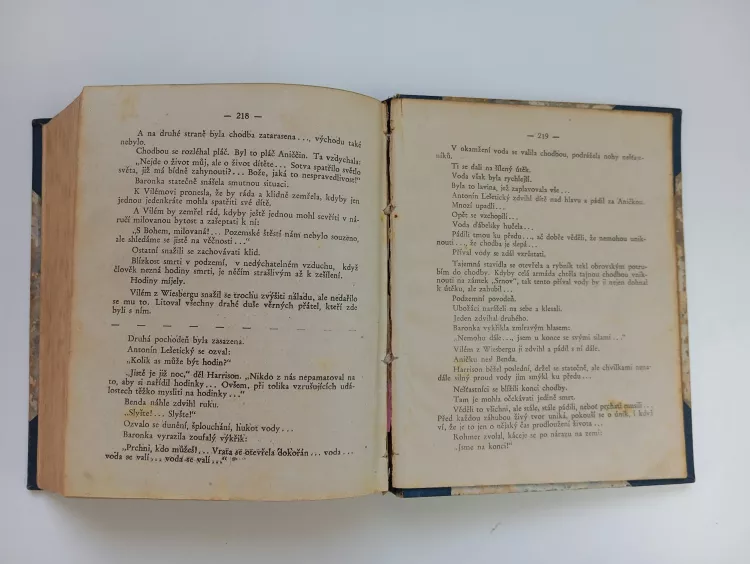 — 218 —
A na druhé straně byla chodba zatarasena..., východu také
nebylo.
Chodbou se rozléhal pláč. Byl to pláč Aniččin. Ta vzdychala:
„Nejde o život můj, ale o život dítěte... Sotva spatřilo světlo
světa, již má bídně zahynouti?... Bože, jaká to nespravedlivost!“
Baronka statečně snášela smutnou situaci.
K Vilémovi pronesla, že by ráda a klidně zemřela, kdyby jen
jednou jedenkráte mohla spatřiti své dítě.
A Vilém by zemřel rád, kdyby ještě jednou mohl sevříti v ná-
ručí milovanou bytost a zašeptati k ní:
„S Bohem, milovaná!... Pozemské štěstí nám nebylo souzeno,
ale shledáme se jistě na věčnosti...“
Ostatní snažili se zachovávati klid.
Blízkost smrti v podzemí, v nedýchatelném vzduchu, když
člověk nezná hodiny smrti, je něčím strašlivým až k zešílení.
Hodiny míjely.
Vilém z Wiesbergu snažil se trochu zvýšiti náladu, ale nedařilo
se mu to. Litoval všechny drahé duše věrných přátel, kteří zde
byli s ním.
— — — — — — — — — — — — —
Druhá pochodeň byla zasazena.
Antonín Lešetický se ozval:
„Kolik as může být hodin?“
„Jistě je již noc,“ děl Harrison. „Nikdo z nás nepamatoval na
to, aby si nařídil hodinky... Ovšem, při tolika vzrušujících udá-
lostech těžko mysliti na hodinky...“
Benda náhle zdvihl ruku.
„Slyšte!... Slyšte!“
Ozvalo se dunění, šplouchání, hukot vody...
Baronka vyrazila zoufalý výkřik:
„Prchni, kdo můžeš!... Vrata se otevřela dokořán... voda...
voda se valí... voda se valí...“
— 219 —
V okamžení voda se valila chodbou, podrážela nohy nešťast-
níků.
Ti se dali na šílený útěk.
Voda však byla rychlejší.
Byla to lavina, jež zaplavovala vše...
Antonín Lešetický zdvihl dítě nad hlavu a pádil za Aničkou.
Mnozí upadli...
Opět se vzchopili...
Voda ďábelsky hučela...
Pádili tmou ku předu..., ač dobře věděli, že nemohou unik-
nouti... že chodba je slepá...
Příval vody se zdál vzrůstati.
Tajemná stavidla se otevřela a rybník tekl obrovským potru-
bím do chodby. Kdyby celá armáda chtěla tajnou chodbou vnik-
nouti na zámek „Srnov“, tak tento příval vody by ji nejen dohnal
k útěku, ale zahubil...
Podzemní povodeň.
Ubožáci naráželi na sebe a klesali.
Jeden zdvíhal druhého.
Baronka vykřikla zmíravým hlasem:
„Nemohu dále..., jsem u konce se svými silami...“
Vilém z Wiesbergu ji zdvihl a pádil s ní dále.
Aničku nesl Benda.
Harrison běžel poslední, držel se statečně, ale chvílkami nena-
dále silný proud vody jím smýkl ku předu...
Nešťastníci se blížili konci chodby.
Tam je mohla očekávati jedině smrt.
Věděli to všichni, ale stále, stále pádili, neboť prchati musili...
Před každou záhubou živý tvor uniká, pokouší se o únik, i když
ví, že je to jen o nějaký čas prodloužení života...
Rohner zvolal, káceje se po nárazu na zemi:
„Jsme na konci!“